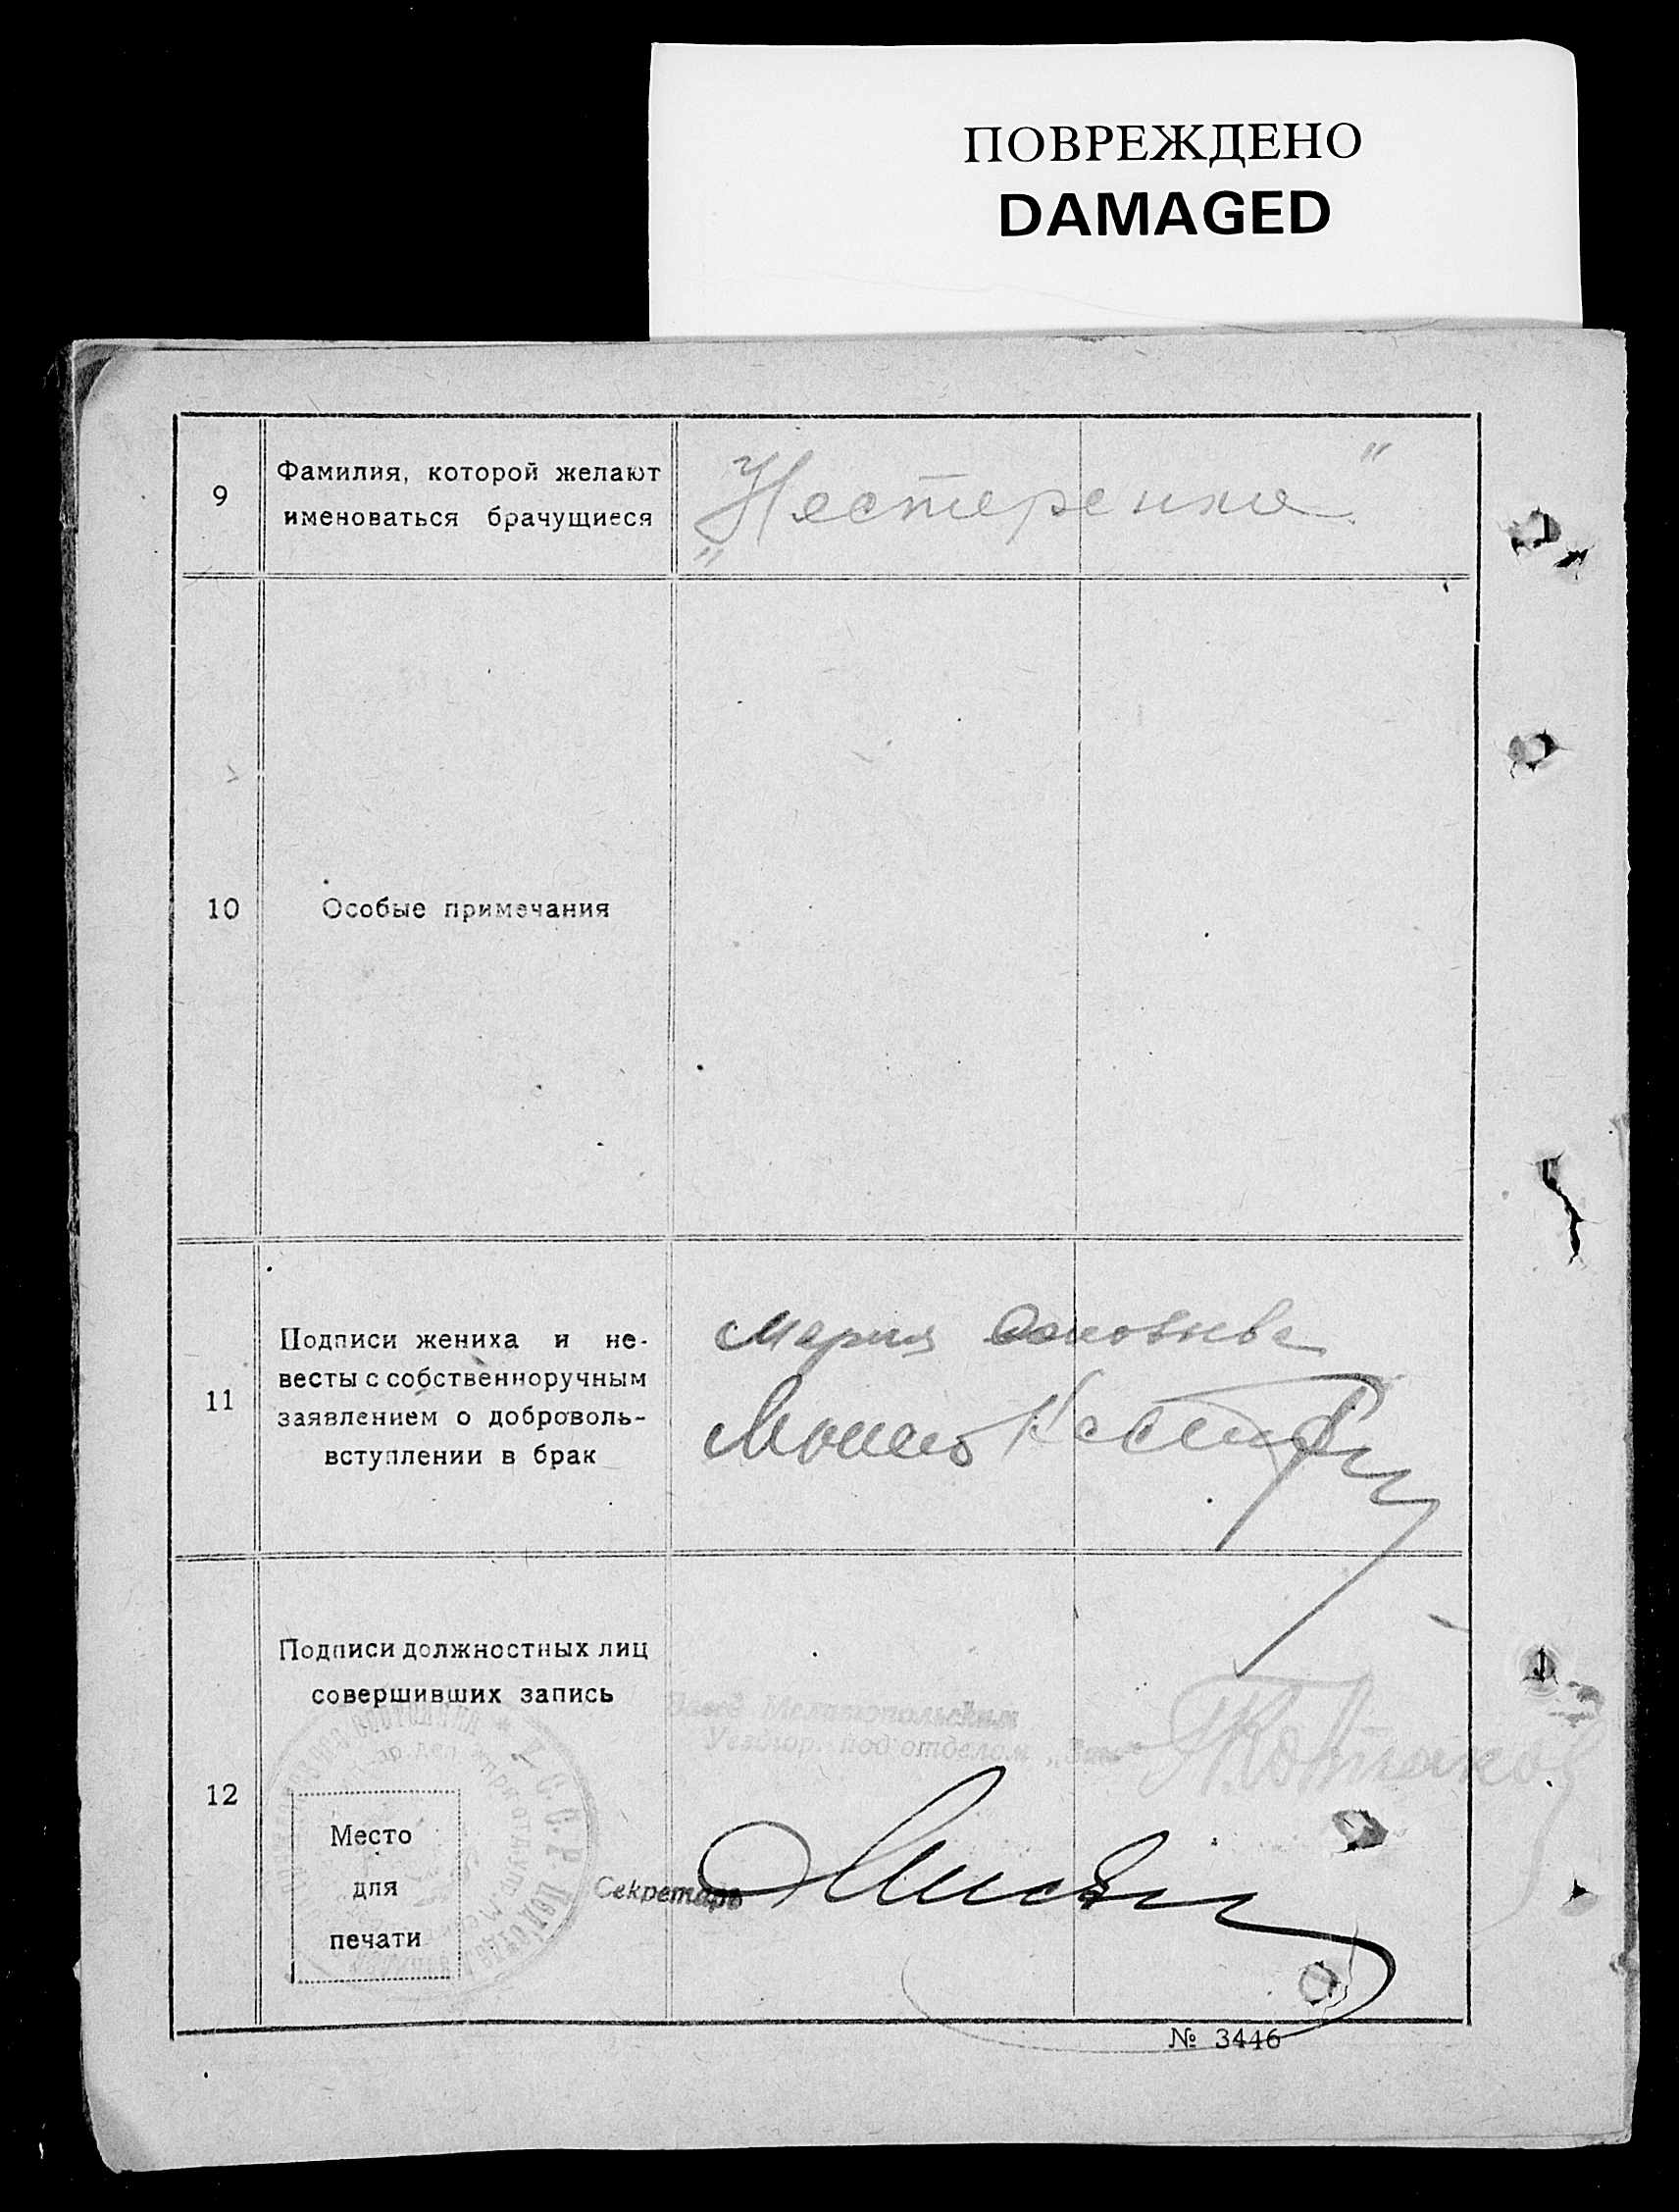 ПОВРЕЖДЕНО
DAMAGED
9
Фамилия, которой желают
именоваться брачущиеся
„Нестеренко"
10
Особые примечания
11
Подписи жениха и не-
весты с собственноручным
заявлением о доброволь-
вступлении в брак
Мария
12
Подписи должностных лиц
совершивших запись
Завед Мелитопольским
Уездгор. подотделом „Загс"
Место
для
печати
Секретарь
№ 3446